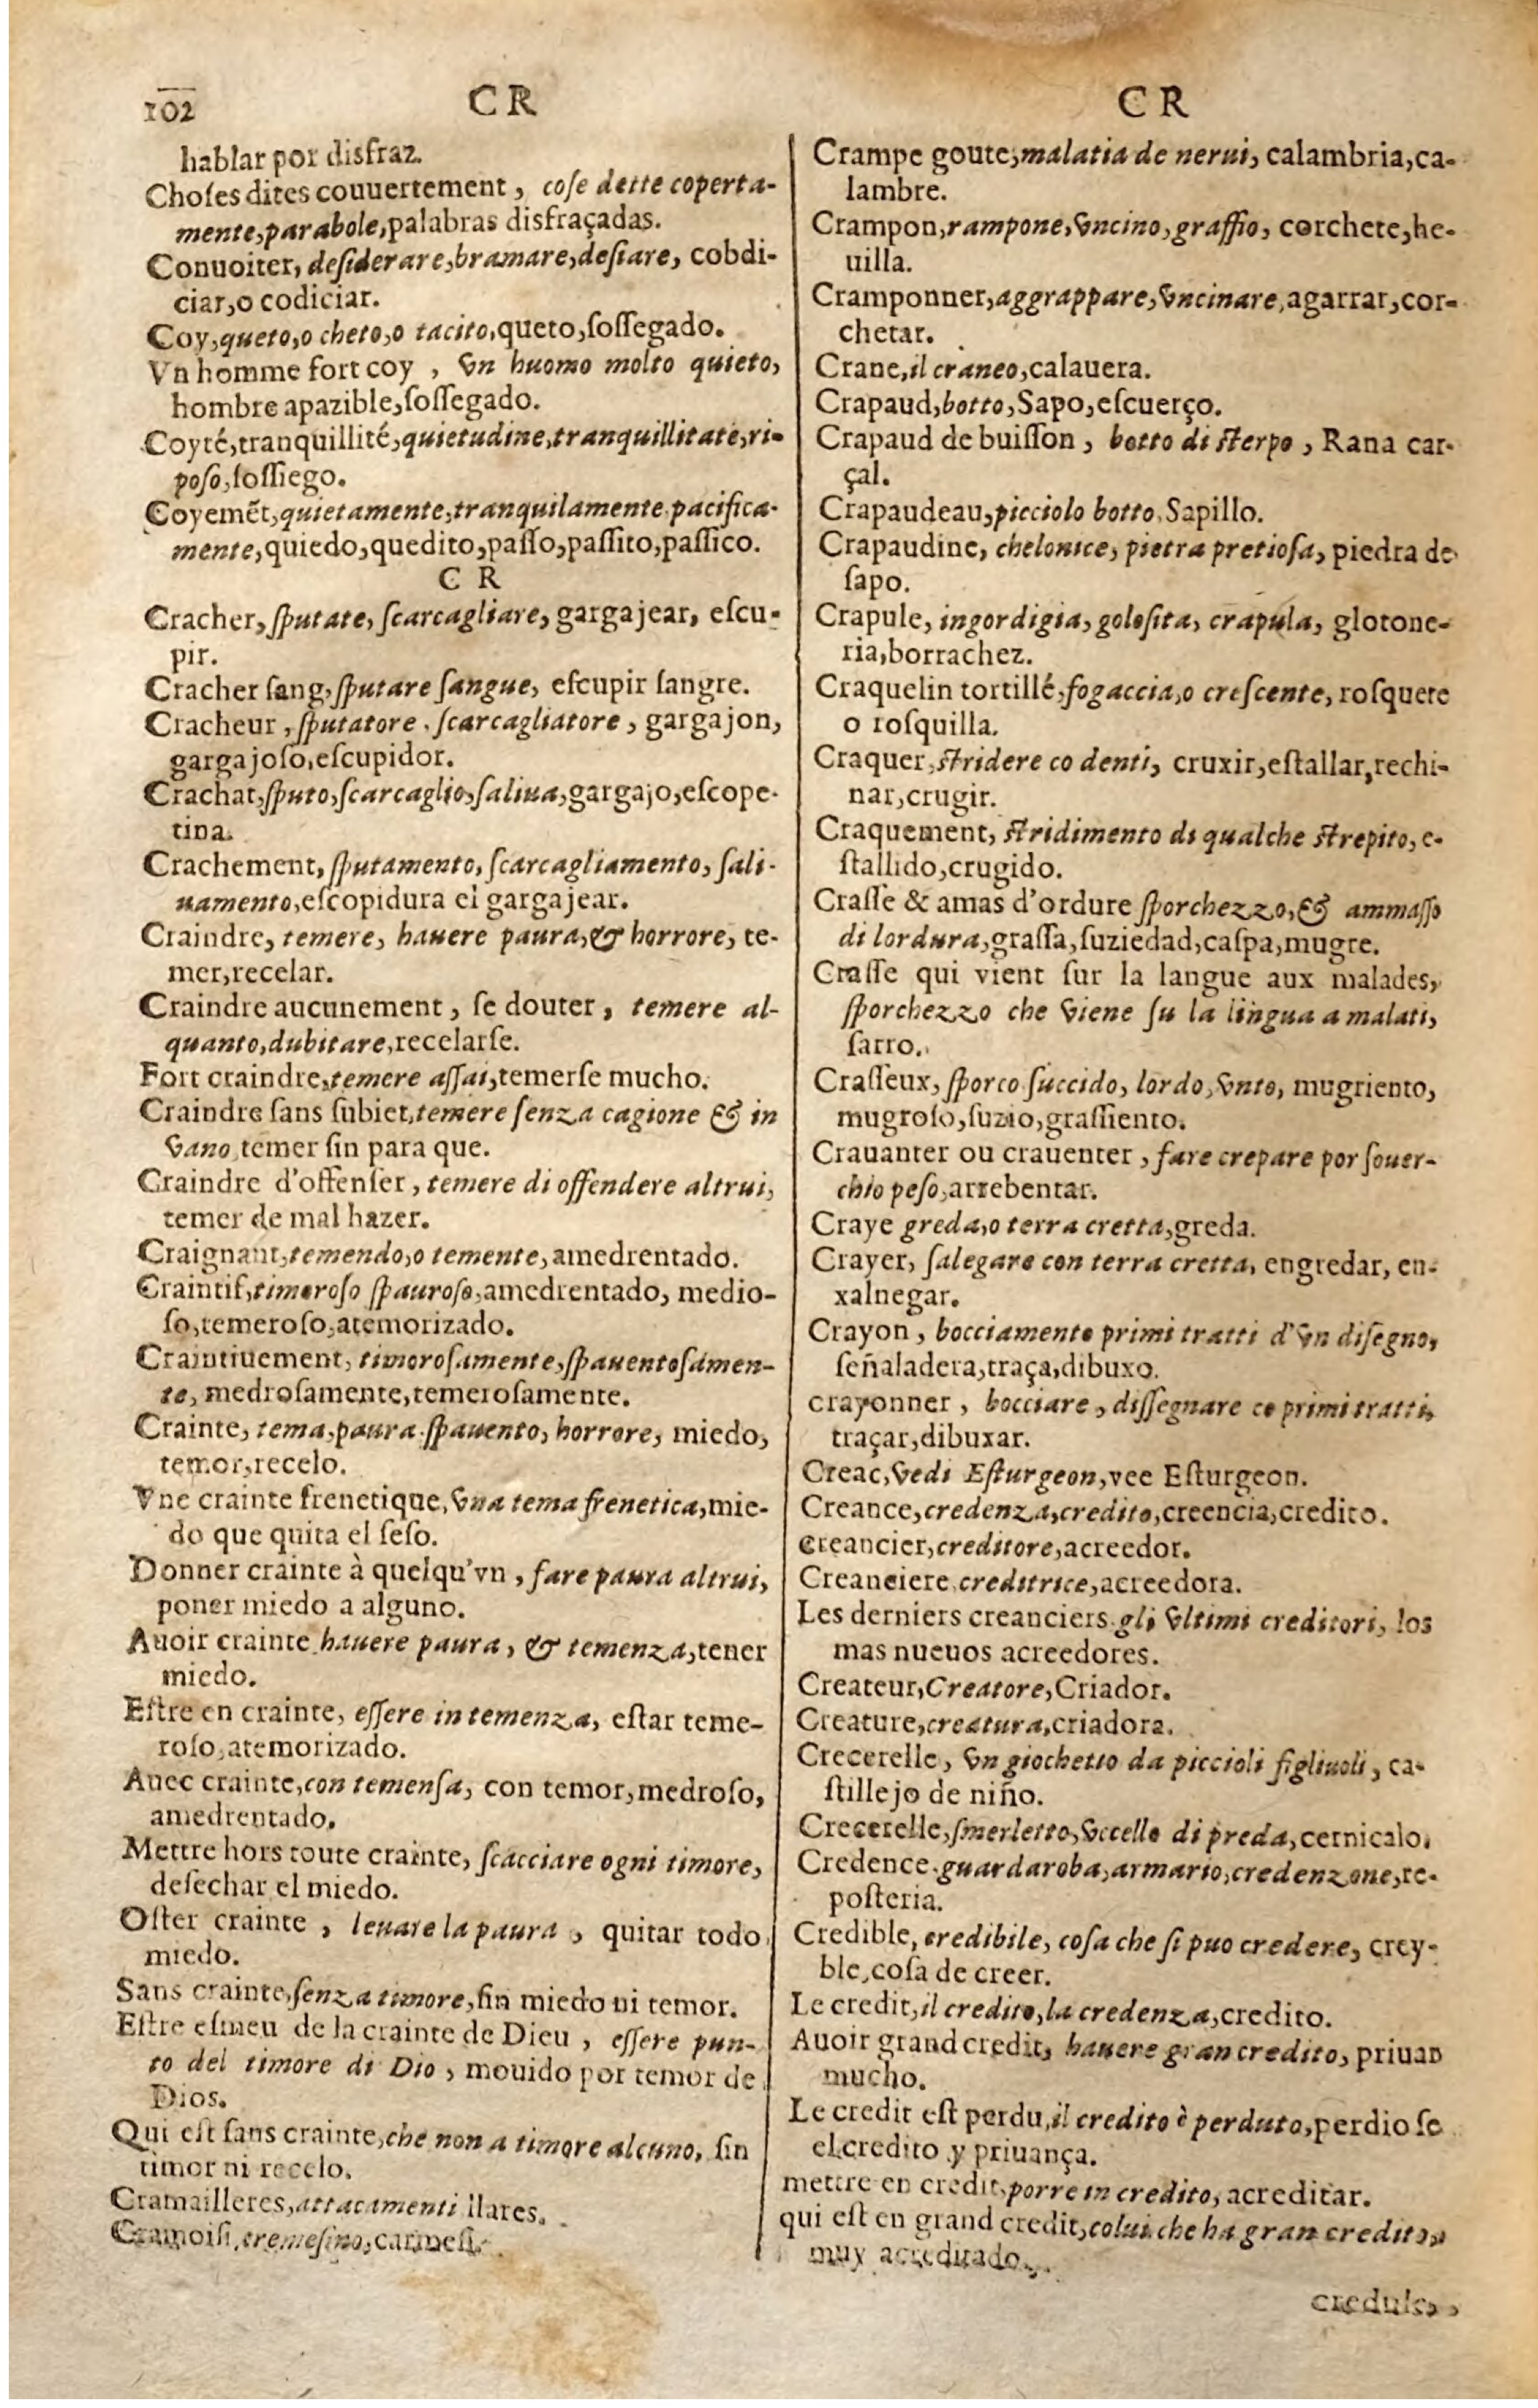 102
C R
C R
hablar por disfraz.
Choſes dites couuertement, coſe dette coperta-
mente, parabole, palabras disfraçadas.
Conuoiter, deſiderare, bramare, deſiare, cobdi-
ciar, o codiciar.
Coy, queto, o cheto, o tacito, queto, ſoſſegado.
Vn homme fort coy, vn huomo molto quieto,
hombre apazible, ſoſſegado.
Coyté, tranquillité, quietudine, tranquillitate, ri-
poſo, ſoſſiego.
Coyemẽt, quietamente, tranquilamente pacifica-
mente, quiedo, quedito, paſſo, paſſito, paſſico.
C R
Cracher, ſputate, ſcarcagliare, gargajear, eſcu-
pir.
Cracher ſang, ſputare ſangue, eſcupir ſangre.
Cracheur, ſputatore, ſcarcagliatore, gargajon,
gargajoſo, eſcupidor.
Crachat, ſputo, ſcarcaglio, ſaliua, gargajo, eſcope-
tina.
Crachement, ſputamento, ſcarcagliamento, ſali-
uamento, eſcopidura el gargajear.
Craindre, temere, hauere paura, & horrore, te-
mer, recelar.
Craindre aucunement, ſe douter, temere al-
quanto, dubitare, recelarſe.
Fort craindre, temere aſſai, temerſe mucho.
Craindre ſans ſubiet, temere ſenza cagione & in
vano, temer ſin para que.
Craindre d'offenſer, temere di offendere altrui,
temer de mal hazer.
Craignant, temendo, o temente, amedrentado.
Craintif, timoroſo ſpauroſo, amedrentado, medio-
ſo, temeroſo, atemorizado.
Craintiuement, timoroſamente, ſpauentoſamen-
te, medroſamente, temeroſamente.
Crainte, tema, paura, ſpauento, horrore, miedo,
temor, recelo.
Vne crainte frenetique, vna tema frenetica, mie-
do que quita el ſeſo.
Donner crainte à quelqu'vn, fare paura altrui,
poner miedo a alguno.
Auoir crainte, hauere paura, & temenza, tener
miedo.
Eſtre en crainte, eſſere in temenza, eſtar teme-
roſo, atemorizado.
Auec crainte, con temenſa, con temor, medroſo,
amedrentado.
Mettre hors toute crainte, ſcacciare ogni timore,
deſechar el miedo.
Oſter crainte, leuare la paura, quitar todo
miedo.
Sans crainte, ſenza timore, ſin miedo ni temor.
Eſtre eſmeu de la crainte de Dieu, eſſere pun-
to del timore di Dio, mouido por temor de
Dios.
Qui eſt ſans crainte, che non a timore alcuno, ſin
timor ni recelo.
Cramailleres, attacamenti llares.
Cramoiſi, cremeſino, carmeſi.
Crampe goute, malatia de nerui, calambria, ca-
lambre.
Crampon, rampone, vncino, graffio, corchete, he-
uilla.
Cramponner, aggrappare, vncinare, agarrar, cor-
chetar.
Crane, il craneo, calauera.
Crapaud, botto, Sapo, eſcuerço.
Crapaud de buiſſon, botto di ſterpo, Rana car-
çal.
Crapaudeau, picciolo botto, Sapillo.
Crapaudine, chelonice, pietra pretioſa, piedra de
ſapo.
Crapule, ingordigia, goloſita, crapula, glotone-
ria, borrachez.
Craquelin tortillé, fogaccia, o creſcente, roſquete
o roſquilla.
Craquer, ſtridere co denti, cruxir, eſtallar, rechi-
nar, crugir.
Craquement, ſtridimento di qualche ſtrepito, e-
ſtallido, crugido.
Craſſe & amas d'ordure ſporchezzo, & ammaſſo
di lordura, graſſa, ſuziedad, caſpa, mugre.
Craſſe qui vient ſur la langue aux malades,
ſporchezzo che viene ſu la lingua a malati,
ſarro.
Craſſeux, ſporco ſuccido, lordo, vnto, mugriento,
mugroſo, ſuzio, graſſiento.
Crauanter ou crauenter, fare crepare por ſouer-
chio peſo, arrebentar.
Craye greda, o terra cretta, greda.
Crayer, ſalegare con terra cretta, engredar, en-
xalnegar.
Crayon, bocciamento primi tratti d'vn diſegno,
ſeñaladera, traça, dibuxo.
crayonner, bocciare, diſſegnare co primi tratti,
traçar, dibuxar.
Creac, vedi Eſturgeon, vee Eſturgeon.
Creance, credenza, credito, creencia, credito.
creancier, creditore, acreedor.
Creanciere, creditrice, acreedora.
Les derniers creanciers, gli vltimi creditori, los
mas nueuos acreedores.
Createur, Creatore, Criador.
Creature, creatura, criadora.
Crecerelle, vn giochetto da piccioli figliuoli, ca-
ſtillejo de niño.
Crecerelle, ſmerletto, vccello di preda, cernicalo.
Credence, guardaroba, armario, credenzone, re-
poſteria.
Credible, credibile, coſa che ſi puo credere, crey-
ble, coſa de creer.
Le credit, il credito, la credenza, credito.
Auoir grand credit, hauere gran credito, priuan
mucho.
Le credit eſt perdu, il credito è perduto, perdio ſe
el credito y priuança.
mettre en credit, porre in credito, acreditar.
qui eſt en grand credit, colui che ha gran credito,
muy acreditado.
credule,